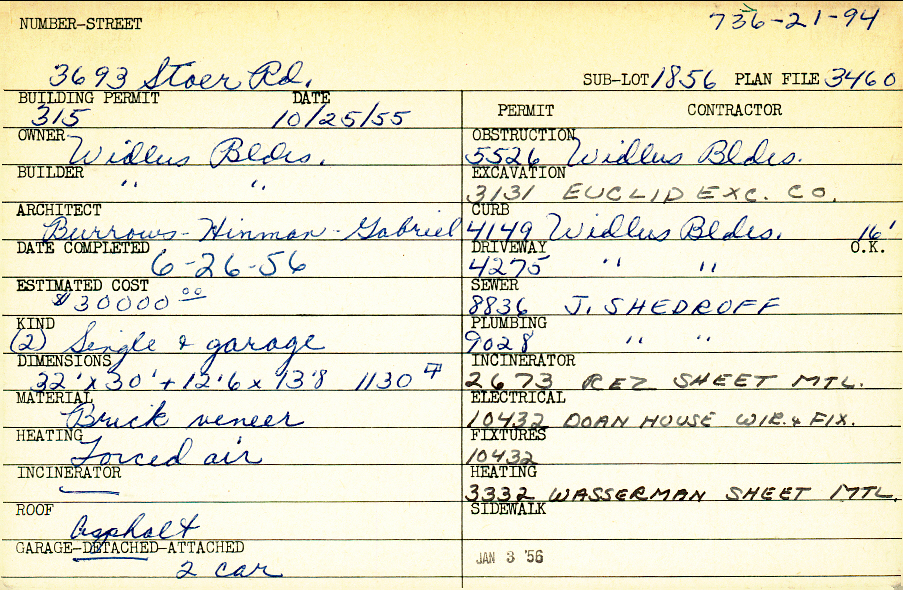 NUMBER-STREET 736-21-94
3693 Stoer Rd. SUB-LOT 1856 PLAN FILE 3460
BUILDING PERMIT DATE
315 10/25/55
PERMIT CONTRACTOR
OWNER Widlus Bldrs.
BUILDER " "
ARCHITECT
Burrows-Hinman-Gabriel
DATE COMPLETED
6-26-56
ESTIMATED COST
$30000 00
KIND
(2) Single & garage
DIMENSIONS
32' x 30' + 12'6 x 13'8 1130
MATERIAL
Brick veneer
HEATING
Forced air
INCINERATOR
ROOF
Asphalt
GARAGE-DETACHED-ATTACHED
2 car
OBSTRUCTION
5526 Widlus Bldrs.
EXCAVATION
3131 EUCLID EXC. CO.
CURB
4149 Widlus Bldrs. 16'
DRIVEWAY O.K.
4275 " "
SEWER
8836 J. SHEDROFF
PLUMBING
9028 " "
INCINERATOR
2673 REZ SHEET MTL.
ELECTRICAL
10432 DOAN HOUSE WIR. & FIX.
FIXTURES
10432
HEATING
3332 WASSERMAN SHEET MTL.
SIDEWALK
JAN 3 '56